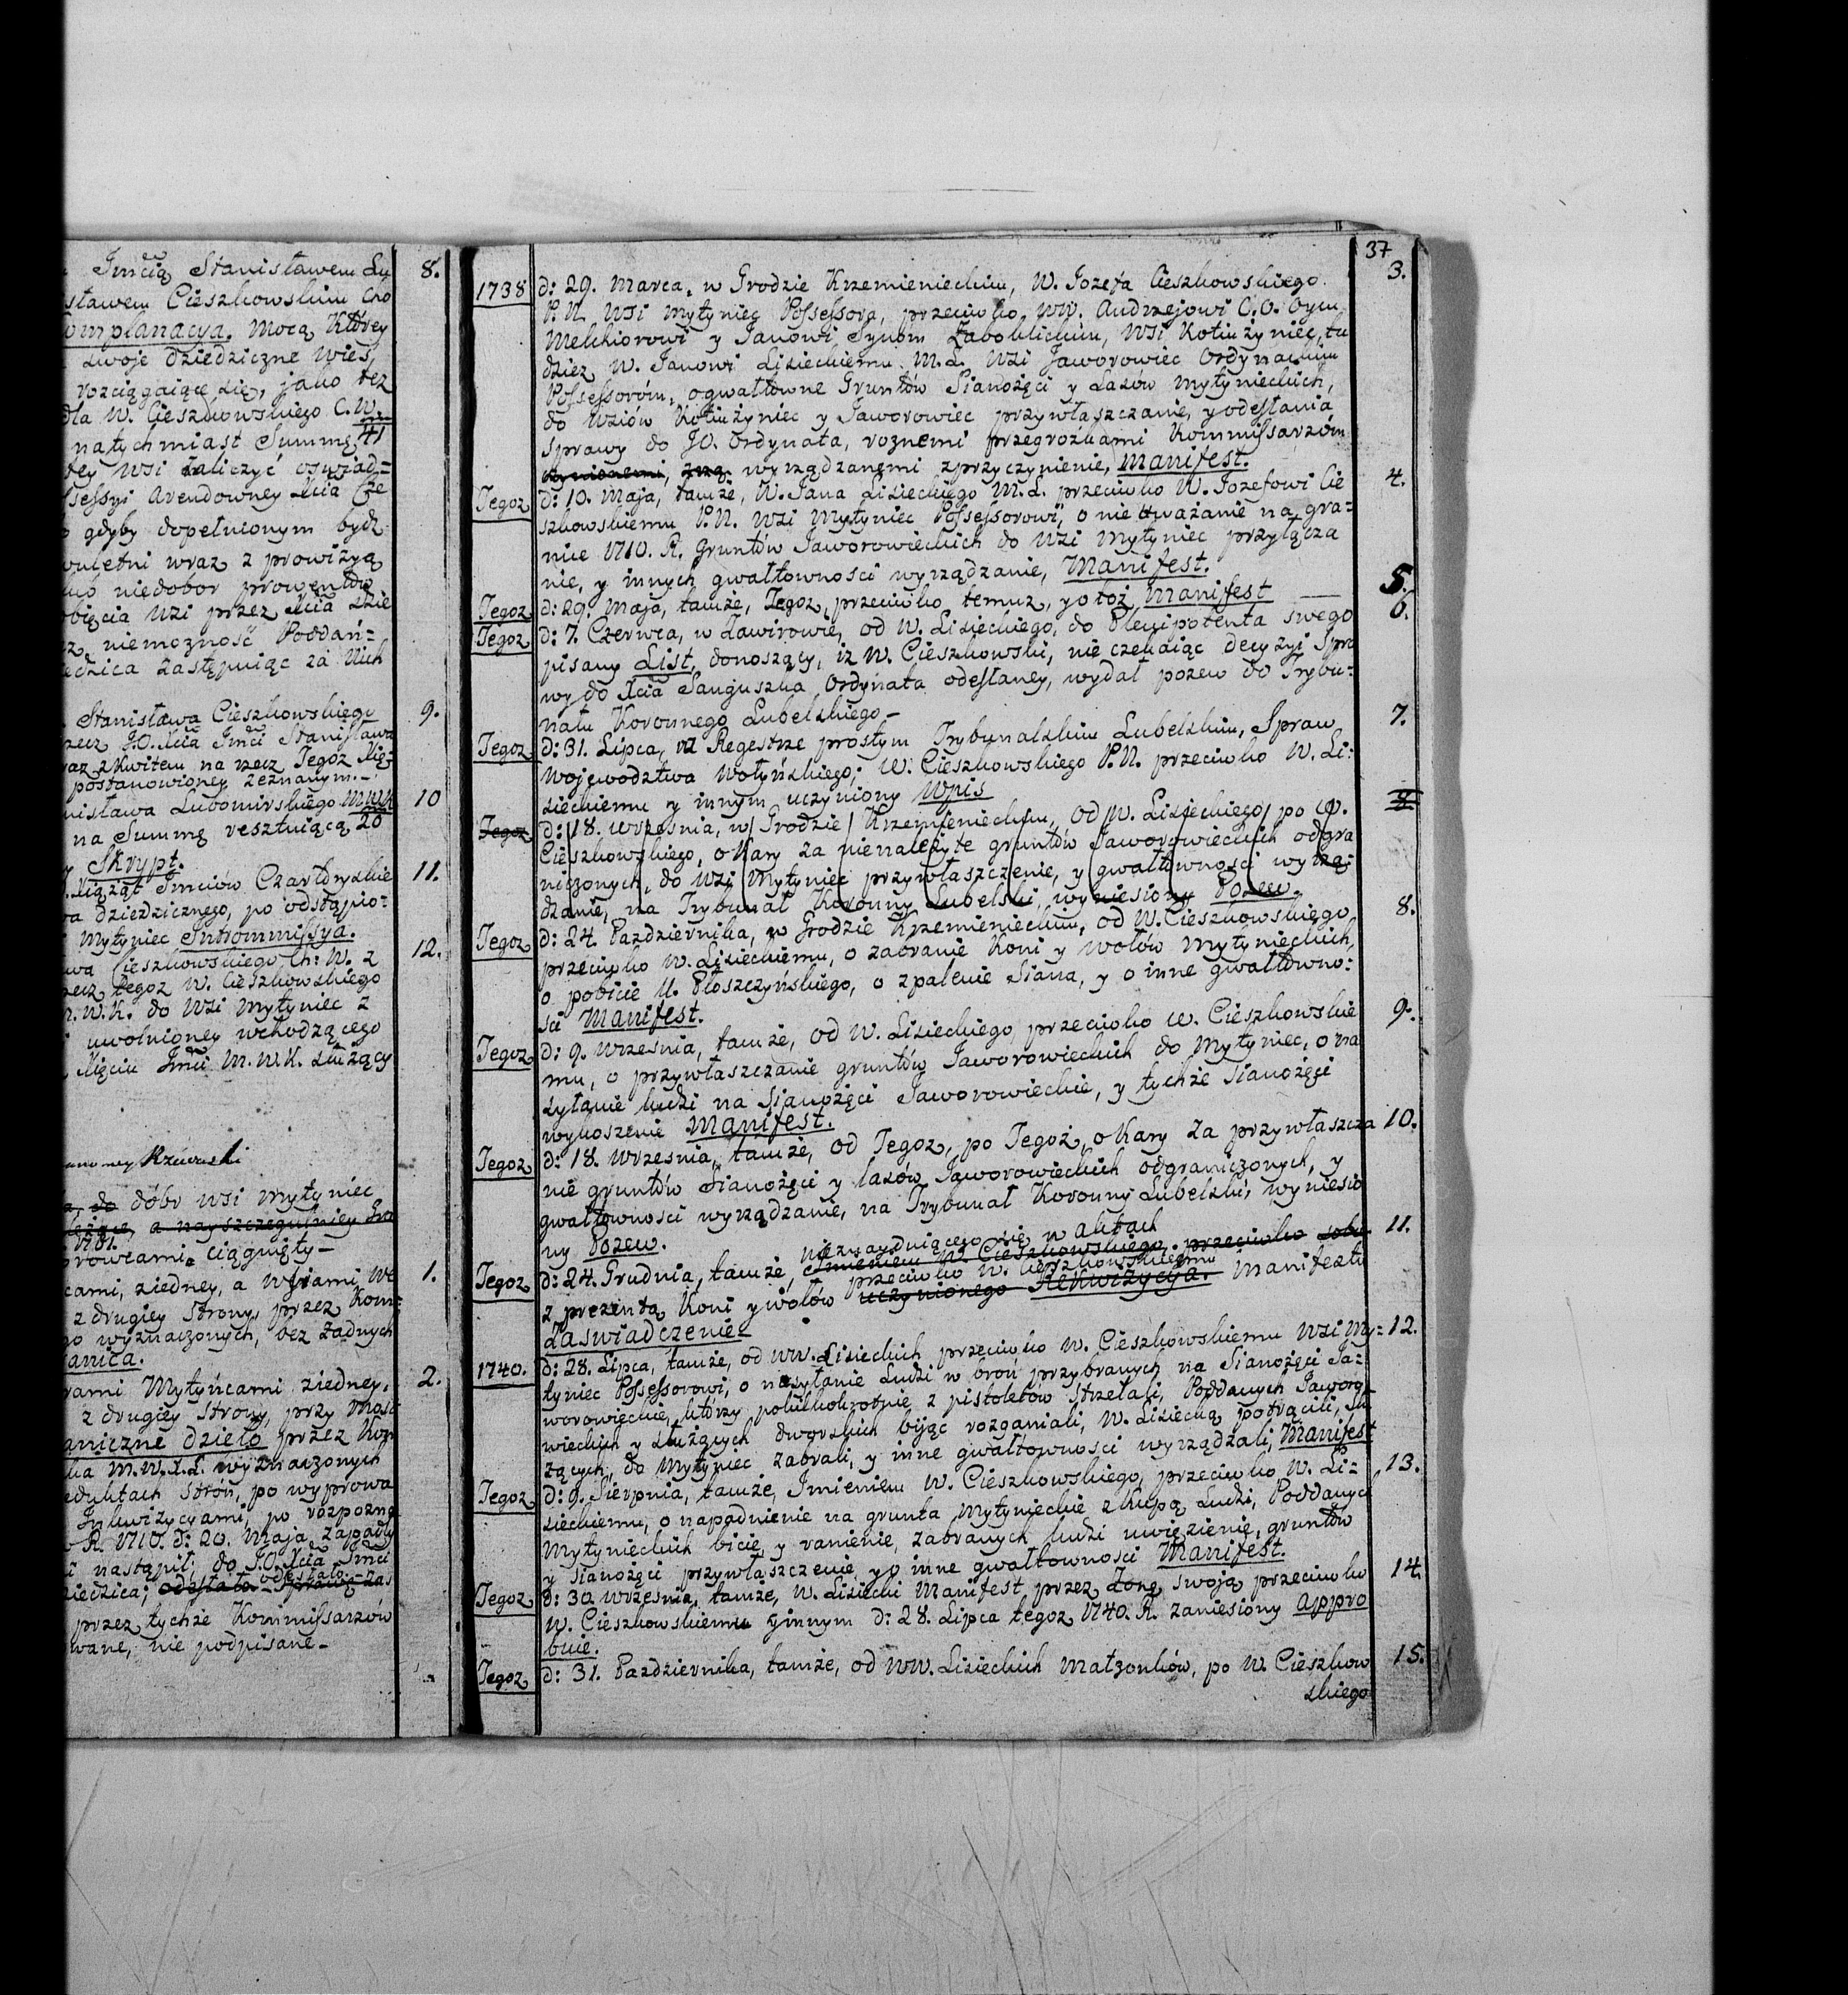 Jmcią Stanisławem Lu 8.
sławem Cieszkowskim Cho
omplanacya. Mocą Ktorey
swoje dziedziczne wieś,
rozciągaiące się, jako tez
dla W. Cieszkowskiego C.W.
natychmiast Summę 41
tey wsi zaliczyć oswiad=
ssessyi arendowney Xcia Cze
gdyby dopełnionym bydz
wraz z prowizyą
niedobor prowentow
obięcia wsi przez Xcia
niemożność Poddań=
edzica zastępuiąc za Nich
Stanisława Cieszkowskiego 9.
rzecz J.O. Xcia Jmci Stanisława
raz z Kwitem na rzecz Tegoz Xię=
postanowioney zeznanym.-
nisława Lubomirskiego MWK 10
na Summę resztuiącą 20
Skrypt.
Xiążąt Jmciow Czartoryskie 11.
wa dziedzicznego, po odstąpio=
Mytyniec Intromissya.
wa Cieszkowskiego Ch: W. z 12.
rzecz tegoz W. Cieszkowskiego
W.K. do wsi Mytyniec z
uwolnioney wchodzącego
Xięciu Jmci M.W.K. służący
Rzewuski
do dóbr wsi Mytyniec
a nayszczegulniey Gra
ciągnięty-
cami, ziedney, a Wsiami We 1.
z drugiey Strony, przez Kom=
wyznaczonych, bez żadnych
anica.
rami Mytyńcami ziedney, 2.
z drugiey strony, przy
aniczne dzieło przez Kom
ka M.W.X.L. wyznaczonych
eduktach Stron, po wyprowa
Jnkwizycyami, po rozpozna
R. 1710. d: 20. Maja zapadły
nastąpił; do JO Xcia Jmci
odesłała.
iedzica; odesłała Sprawę zas
przez tychże Kommissarzów
wane, nie podpisane-
37
1738 d: 29. Marca, w Grodzie Krzemienieckim, W. Jozefa Cieszkowskiego 3.
P.N. wsi Mytyniec Possessora, przeciwko WW. Andrzejowi C.O. Oycu
Melchiorowi y Janowi Synom Zaboklickim, wsi Kotiużyniec, tu
dziez W. Janowi Lisieckiemu M.L. wsi Jaworowiec Ordynackim
Possessorom, ogwałtowne Gruntów Sianożęci y Lasów Mytynieckich,
do Wsiów Kotiużyniec y Jaworowiec przywłaszczanie, y odesłania
Sprawy do JO. Ordynata, roznemi przegrozkami Kommissarzom
wyrządzanemi zprzyczynienie, Manifest.
Tegoz d: 10. Maja, tamże, W. Jana Lisieckiego M.L. przeciwko W. Jozefowi Cie 4.
szkowskiemu P.N. wsi Mytyniec Possessorowi, o nie uważanie na gra=
nice 1710. R. Gruntów Jaworowieckich do wsi Mytyniec przyłącza
nie, y innych gwałtownosci wyrządzanie, Manifest.
Tegoz d: 29. Maja, tamże, Tegoz, przeciwko temuz, y o toż Manifest 5.
Tegoz d: 7. Czerwca, w Zawirowie, od W. Lisieckiego, do Plenipotenta swego 6.
pisany List, donoszący, iz W. Cieszkowski, nie czekając decyzyi Spra
wy do Xcia Sanguszka Ordynata odesłaney, wydał pozew do Trybu=
nału Koronnego Lubelskiego-
Tegoz d: 31. Lipca, w Regestrze prostym Trybunalskim Lubelskim, Spraw 7.
Wojewodztwa Wołyńskiego, W. Cieszkowskiego P.N. przeciwko W. Li=
sieckiemu y innym uczyniony Wpis
Tegoz d: 18. Września, w Grodzie Krzemienieckim, od W. Lisieckiego po W. 8
Cieszkowskiego, o Kary za nienależyte gruntów Jaworowieckich odgra
niczonych, do wsi Mytyniec przywłaszczenie, y gwałtownosci wyrzą=
dzanie, na Trybunał Koronny Lubelski, wyniesiony Pozew.
Tegoz d: 24. Pazdziernika, w Grodzie Krzemienieckim, od W. Cieszkowskiego 8.
przeciwko W. Lisieckiemu, o zabranie Koni y wołów Mytynieckich,
o pobicie U. Płoszczyńskiego, o zpalenie Siana, y o inne gwałtowno=
sci Manifest.
Tegoz d: 9. Wrzesnia, tamże, od W. Lisieckiego, przeciwko W. Cieszkowskie 9.
mu, o przywłaszczanie gruntów Jaworowieckich do Mytyniec, o na
syłanie ludzi na Sianożęci Jaworowieckie, y tychże Sianożęci
wykoszenie Manifest.
Tegoz d: 18. Wrzesnia, tamże, od Tegoz, po Tegoż, o Kary za przywłaszcza 10.
nie gruntów Sianożęci y lasów Jaworowieckich odgraniczonych, y
gwałtownosci wyrządzanie, na Trybunał Koronny Lubelski, wyniesio
ny Pozew.
nieznayduiącego się w aktach
Tegoz d: 24. Grudnia, tamże, Jmieniem W. Cieszkowskiego, przeciwko sobie 11.
przeciwko W. Cieszkowskiemu
z prezentą Koni y wołów uczynionego Rekwizycya. Manifestu
Zaswiadczenie-
1740. d: 28. Lipca, tamże, od WW. Lisieckich przeciwko W. Cieszkowskiemu wsi My= 12.
tyniec Possessorowi, o nasyłanie Ludzi w broń przybranych na Sianożęci Ja=
worowieckie, którzy pokilkokrotnie z pistoletów strzelali, Poddanych Jaworo
wieckich y służących dworskich bijąc rozganiali, W. Lisiecką potrącili, Słu
żących, do Mytyniec zabrali, y inne gwałtownosci wyrządzali, Manifest
Tegoz d: 9. Sierpnia, tamże, Jmieniem W. Cieszkowskiego, przeciwko W. Li= 13.
sieckiemu, o napadnienie na grunta Mytynieckie z kupą Ludzi, Poddanych
Mytynieckich bicie, y ranienie, zabranych ludzi uwięzienie, gruntów
y sianożęci przywłaszczenie, y o inne gwałtownosci Manifest.
Tegoz d: 30 wrzesnia, tamże, W. Lisiecki Manifest przez Zonę swoją przeciwko 14.
W. Cieszkowskiemu y innym d: 28. Lipca tegoz 1740. R. zaniesiony appro
buie.
Tegoz d: 31. Pazdziernika, tamże, od WW. Lisieckich Małzonków, po W. Cieszkow 15.
skiego